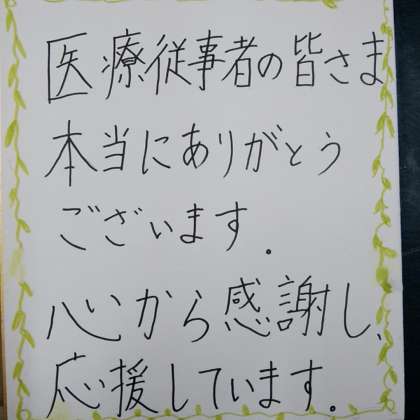 医療従事者の皆さま
本当にありがとう
ございます.
心から感謝し、
応援しています.